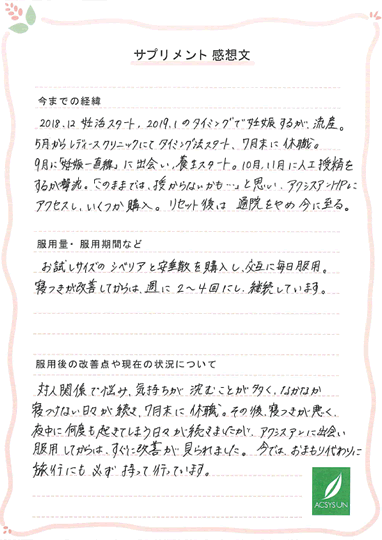 サプリメント 感想文
今までの経緯
2018.12 妊活スタート、2019.1のタイミングで妊娠するが、流産。
5月からレディースクリニックにてタイミング法スタート、7月末に休職。
9月に「妊娠一直線」に出会い、養生スタート。10月、11月に人工授精を
するが撃沈。「このままでは、授からないかも…」と思い、アクシスアンHPに
アクセスし、いくつか購入。リセット後は通院をやめ今に至る。
服用量・服用期間など
お試しサイズのシベリアと安亜散を購入し、交互に毎日服用。
寝つきが改善してからは、週に2〜4回にし、継続しています。
服用後の改善点や現在の状況について
対人関係で悩み、気持ちが沈むことが多く、なかなか
寝つけない日々が続き、7月末に休職。その後、寝つきが悪く、
夜中に何度も起きてしまう日々が続きましたが、アクシスアンに出会い
服用してからは、すぐに改善が見られました。今では、おまもり代わりに
旅行にも必ず持って行っています。
ACSYSUN